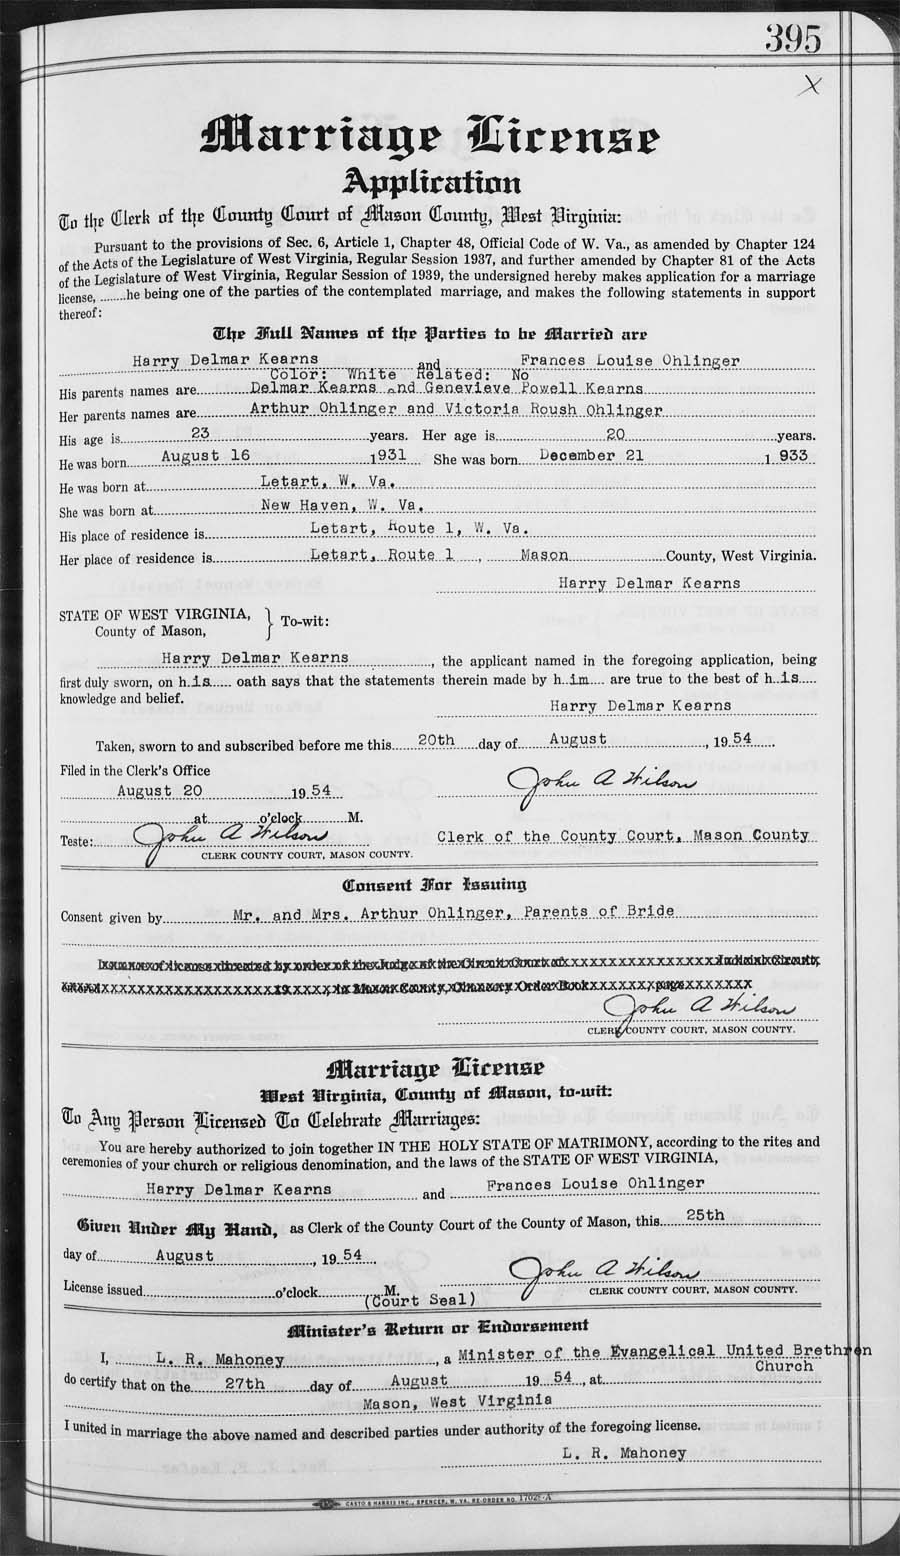 395
X
Marriage License
Application
To the Clerk of the County Court of Mason County, West Virginia:
Pursuant to the provisions of Sec. 6, Article 1, Chapter 48, Official Code of W. Va., as amended by Chapter 124
of the Acts of the Legislature of West Virginia, Regular Session 1937, and further amended by Chapter 81 of the Acts
of the Legislature of West Virginia, Regular Session of 1939, the undersigned hereby makes application for a marriage
license, ........he being one of the parties of the contemplated marriage, and makes the following statements in support
thereof:
The Full Names of the Parties to be Married are
Harry Delmar Kearns and Frances Louise Ohlinger
Color: White Related: No
His parents names are Delmar Kearns and Genevieve Powell Kearns
Her parents names are Arthur Ohlinger and Victoria Roush Ohlinger
His age is 23 years. Her age is 20 years.
He was born August 16 1931 She was born December 21 1933
He was born at Letart, W. Va.
She was born at New Haven, W. Va.
His place of residence is Letart, Route 1, W. Va.
Her place of residence is Letart, Route 1, Mason County, West Virginia.
Harry Delmar Kearns
STATE OF WEST VIRGINIA,
County of Mason, } To-wit:
Harry Delmar Kearns, the applicant named in the foregoing application, being
first duly sworn, on h is oath says that the statements therein made by h im are true to the best of h is
knowledge and belief.
Harry Delmar Kearns
Taken, sworn to and subscribed before me this 20th day of August, 19 54
Filed in the Clerk's Office
August 20 19 54 John A Wilson
at o'clock M.
Teste: John A Wilson Clerk of the County Court, Mason County
CLERK COUNTY COURT, MASON COUNTY.
Consent For Issuing
Consent given by Mr. and Mrs. Arthur Ohlinger, Parents of Bride
Issuance of license directed by order of the Judge of the Circuit Court of
19 , in Mason County, Chancery Order Book page
John A Wilson
CLERK COUNTY COURT, MASON COUNTY.
Marriage License
West Virginia, County of Mason, to-wit:
To Any Person Licensed To Celebrate Marriages:
You are hereby authorized to join together IN THE HOLY STATE OF MATRIMONY, according to the rites and
ceremonies of your church or religious denomination, and the laws of the STATE OF WEST VIRGINIA,
Harry Delmar Kearns and Frances Louise Ohlinger
Given Under My Hand, as Clerk of the County Court of the County of Mason, this 25th
day of August, 19 54
John A Wilson
License issued o'clock M. CLERK COUNTY COURT, MASON COUNTY.
(Court Seal)
Minister's Return or Endorsement
I, L. R. Mahoney, a Minister of the Evangelical United Brethren
Church
do certify that on the 27th day of August 19 54, at
Mason, West Virginia
I united in marriage the above named and described parties under authority of the foregoing license.
L. R. Mahoney
CASTO & HARRIS INC., SPENCER, W. VA. RE-ORDER NO. 17028-A